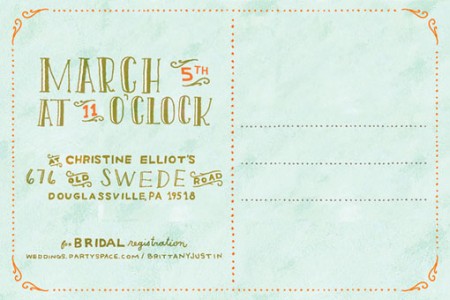 MARCH 5TH
AT 11 O'CLOCK
AT CHRISTINE ELLIOT'S
676 OLD SWEDE ROAD
DOUGLASSVILLE, PA 19518
for BRIDAL registration
WEDDINGS.PARTYSPACE.COM/BRITTANYJUSTIN